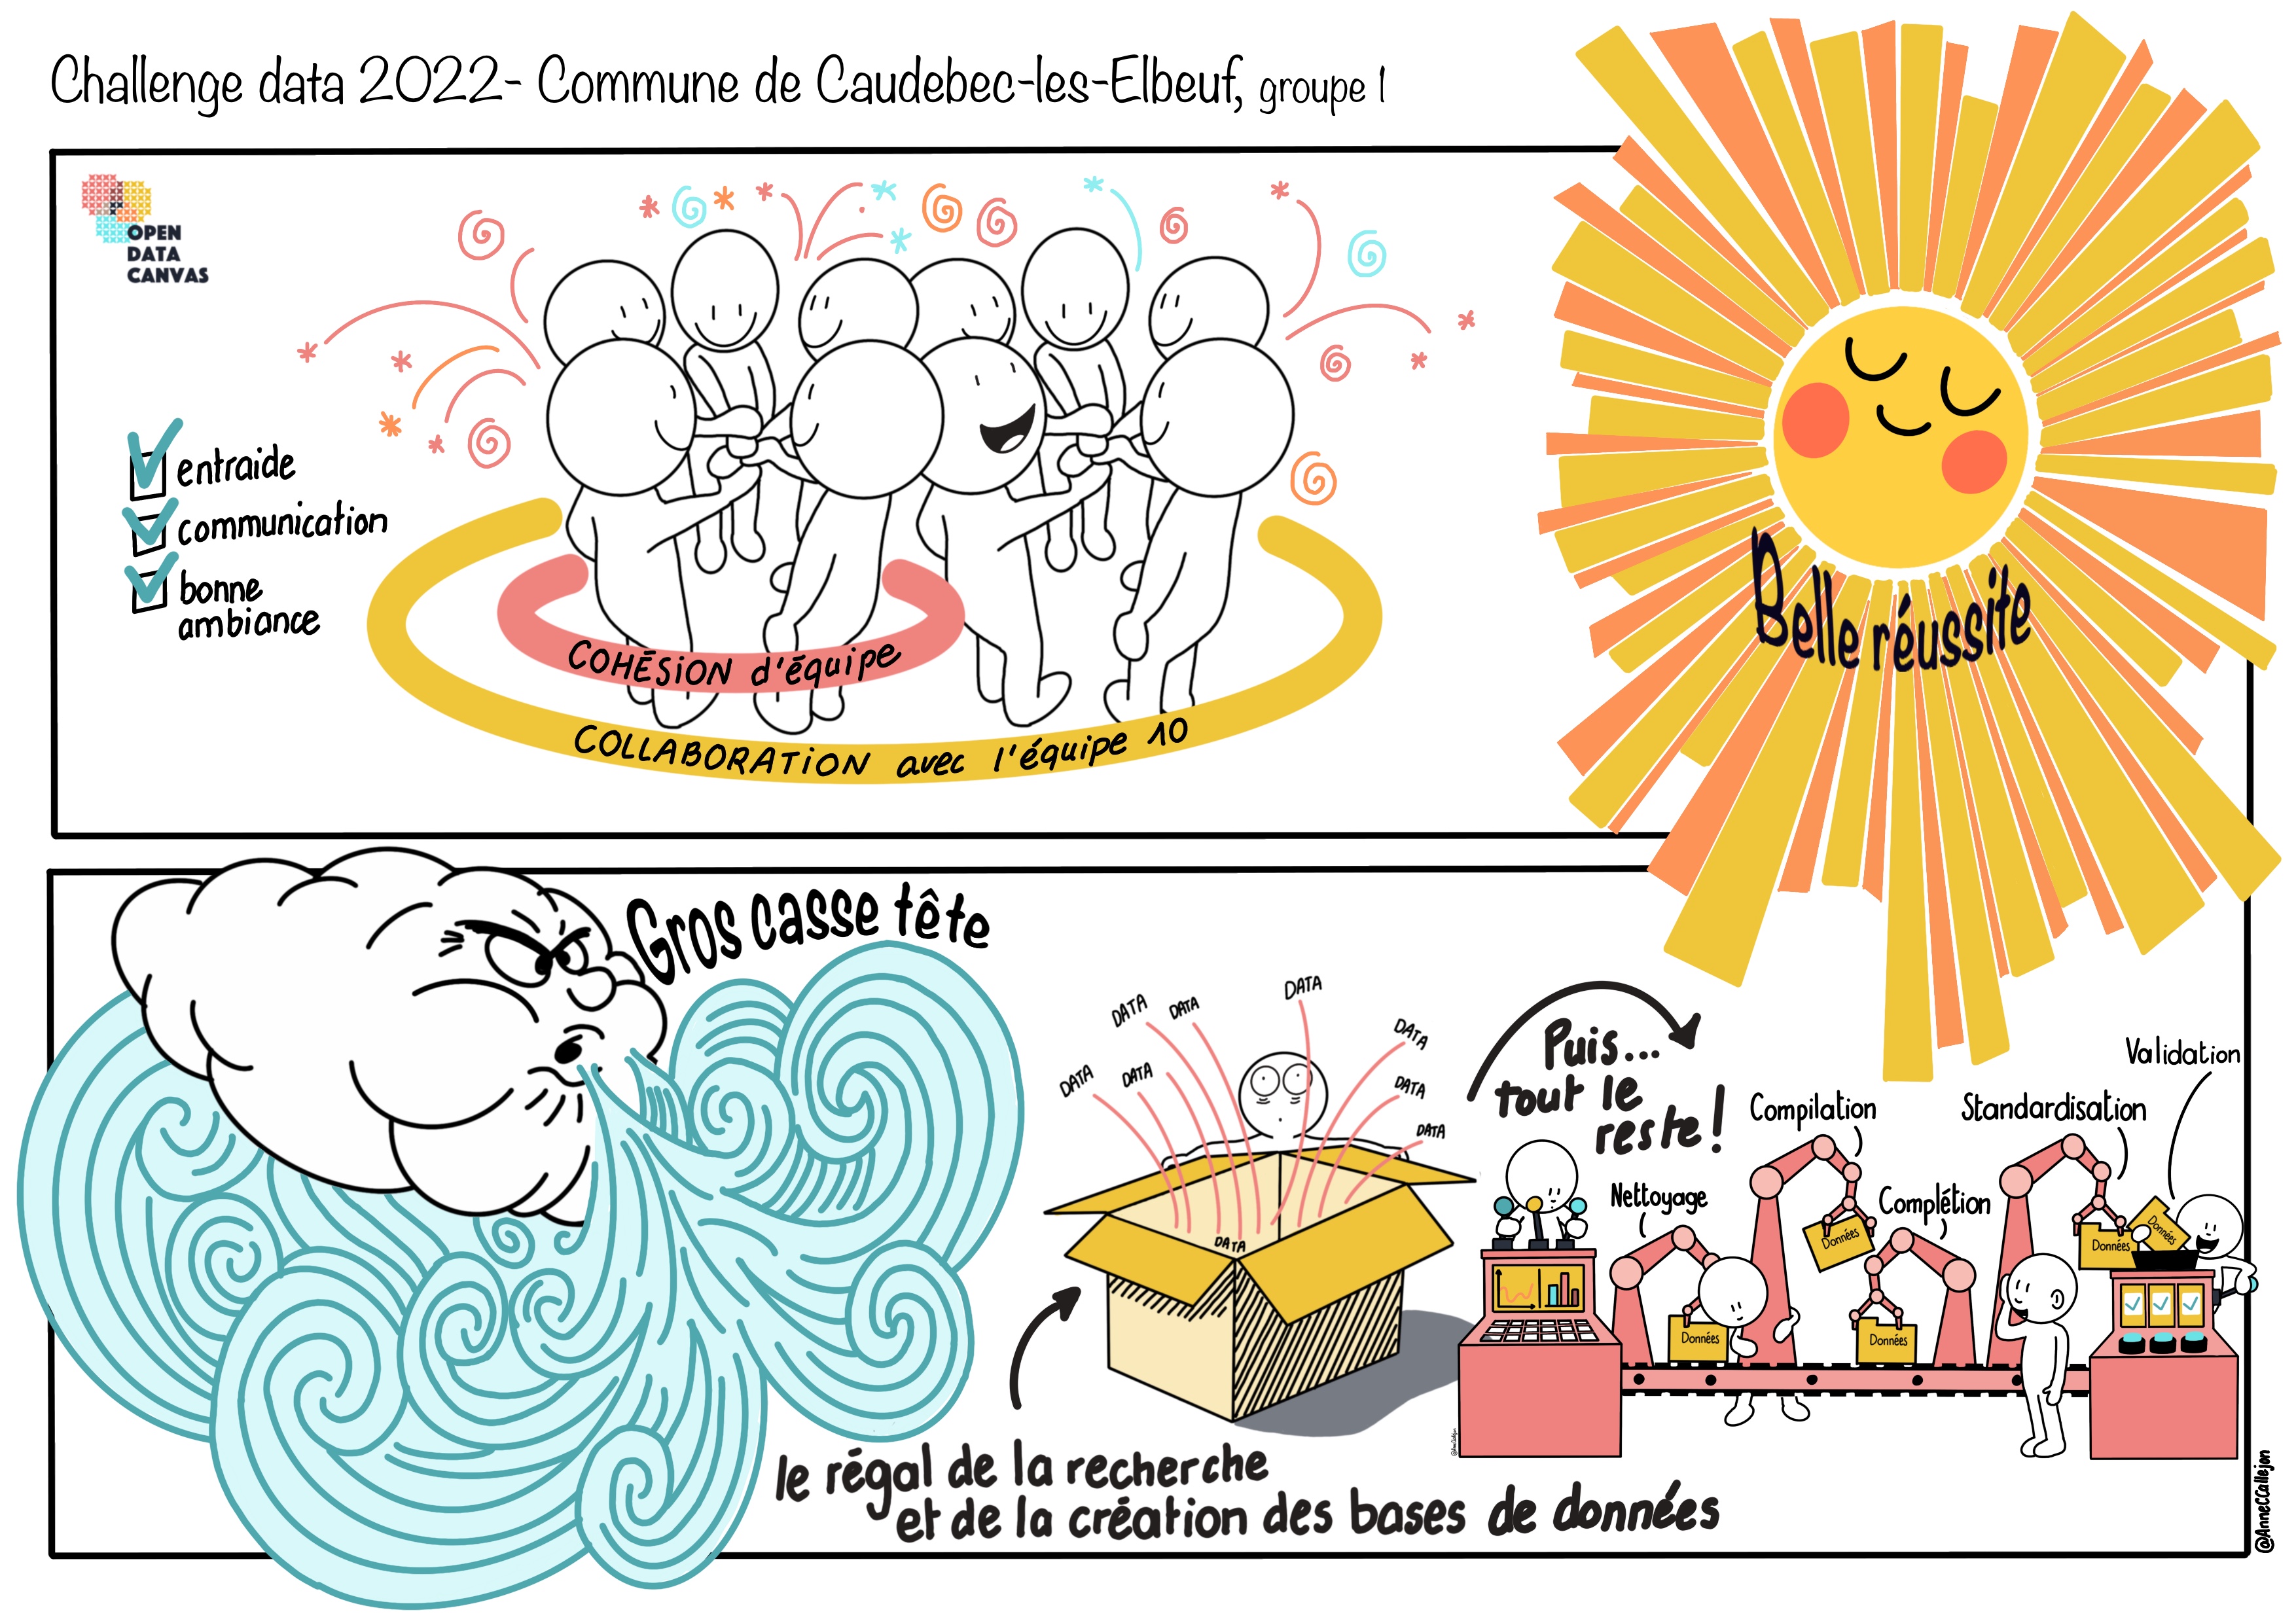 Challenge data 2022- Commune de Caudebec-les-Elbeuf, groupe 1
OPEN
DATA
CANVAS
entraide
communication
bonne
ambiance
COHÉSION d'équipe
COLLABORATION avec l'équipe 10
Belle réussite
Gros casse tête
DATA
DATA
DATA
DATA
DATA
DATA
DATA
DATA
DATA
le régal de la recherche
et de la création des bases de données
Puis...
tout le
reste!
Nettoyage
Compilation
Complétion
Standardisation
Validation
Données
Données
Données
Données
Données
@AnneCCallejon